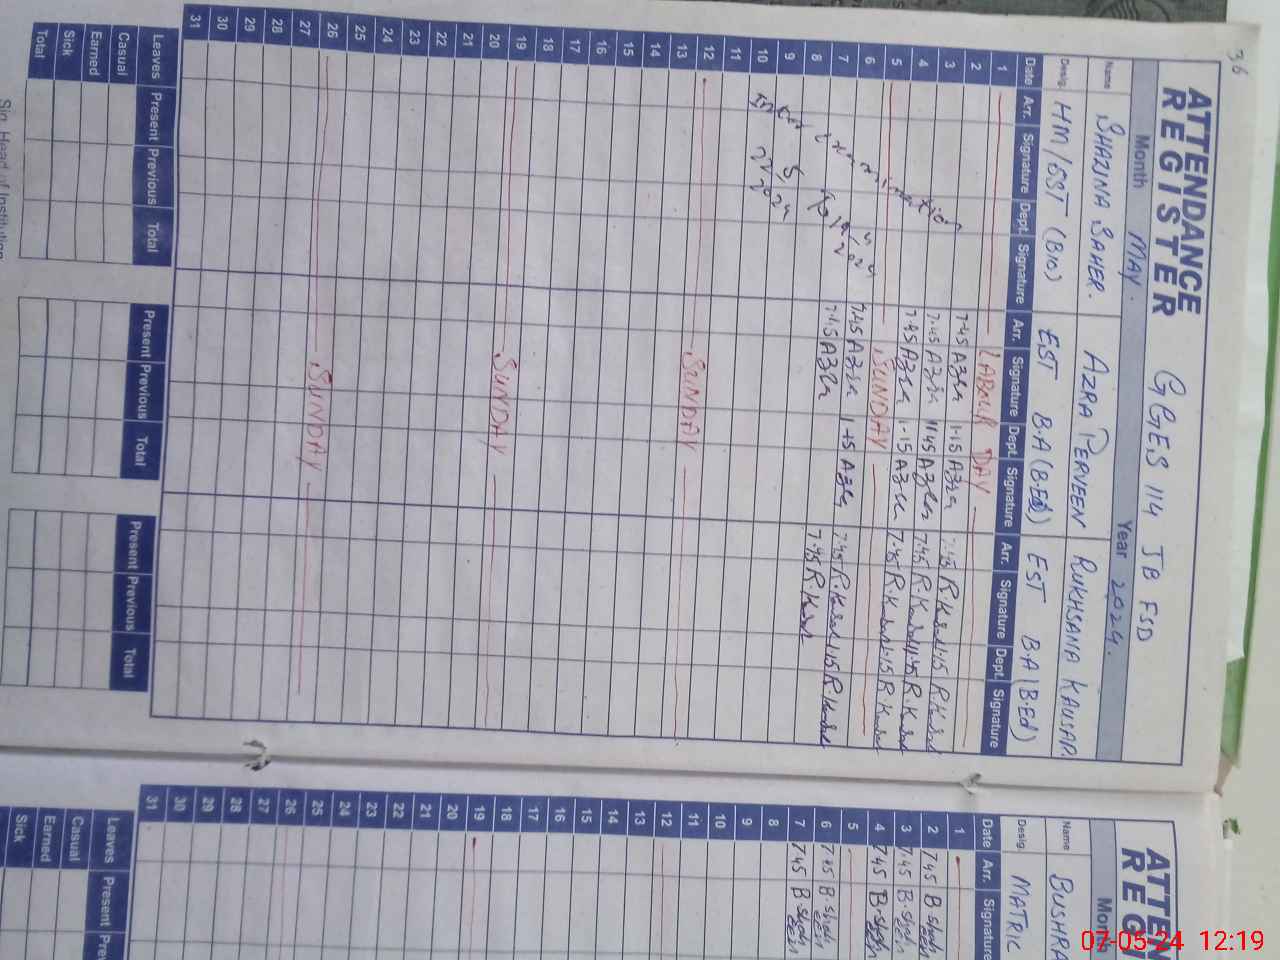 36
ATTENDANCE REGISTER GGES 114 JB FSD
Month MAY. Year 2024.
Name SHAZINA SAHER. AZRA PERVEEN RUKHSANA KAUSAR.
Desig. HM/EST (BIO) EST B.A (B.Ed) EST B.A (B.Ed)
Date Arr. Signature Dept. Signature Arr. Signature Dept. Signature Arr. Signature Dept. Signature
1 LABOUR DAY
2 7.45 Azra 1.15 Azra 7.45 R.Kausar 1.15 R.Kausar
3 7.45 Azra 11.45 Azra 7.45 R.Kausar R.Kausar
4 7.45 Azra 1.15 Azra 7.45 R.Kausar 1.15 R.Kausar
5 SUNDAY
6 7.45 Azra 1.15 Azra 7.45 R.Kausar 1.15 R.Kausar
7 7.45 Azra 7.45 R.Kausar
8
9
10
11
12 SUNDAY
13
14
15
16
17
18
19 SUNDAY
20
21
22
23
24
25
26 SUNDAY
27
28
29
30
31
Leaves Present Previous Total Present Previous Total Present Previous Total
Casual
Earned
Sick
Total
Sig. Head of Institution
ATTEN
REG
Month
Name BUSHRA
Desig. MATRIC
Date Arr. Signature
1
2 7.45 B.
3 7.45 B.
4 7.45 B.
5
6 7.45 B.
7 7.45 B.
8
9
10
11
12
13
14
15
16
17
18
19
20
21
22
23
24
25
26
27
28
29
30
31
Leaves Present Prev
Casual
Earned
Sick
07-05-24 12:19